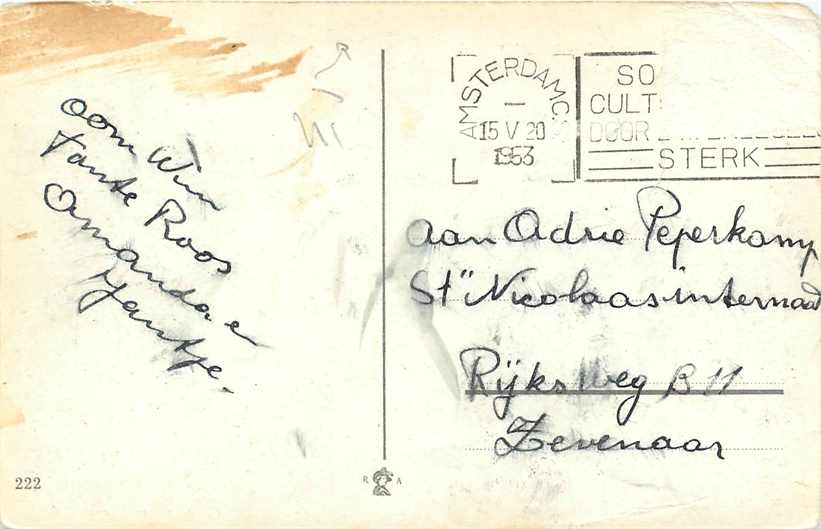 oom Wim
tante Roos
Amanda e
Jantje.
222
R A
AMSTERDAM C.S.
15 V 20
1953
SO
CULT
DOOR
STERK
aan Adrie Peperkamp
St" Nicolaasinternaat
Rijksweg B 11
Zevenaar